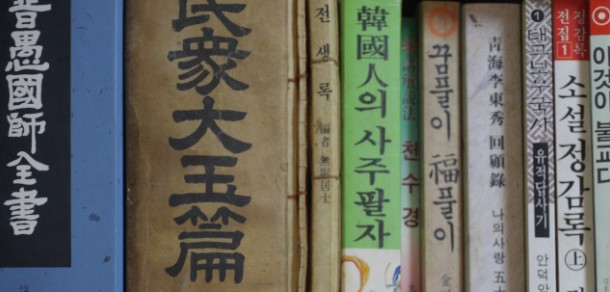 普愚國師全書
民衆大玉篇
전생록
編者 無限居士
韓國人의 사주팔자
천수경
꿈풀이 福풀이
青海李東秀 回顧錄
나의사랑 五
유적답사기
안덕암
정감록
전집 1
소설 정감록 上
이것이 불교다